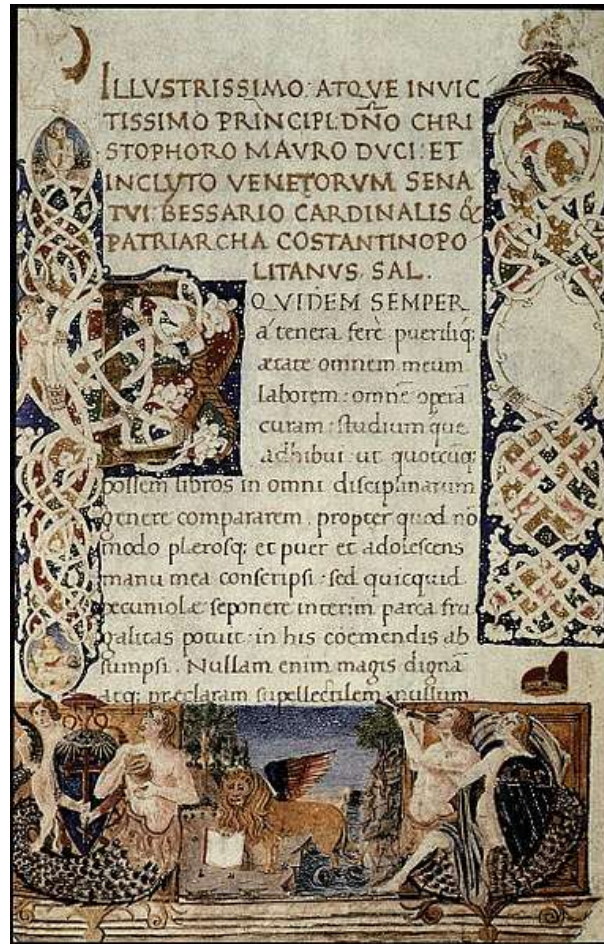 ILLVSTRISSIMO ATQVE INVIC
TISSIMO PRINCIPI. DN̄O CHRI
STOPHORO MAVRO DVCI. ET
INCLYTO VENETORVM SENA
TVI. BESSARIO CARDINALIS &
PATRIARCHA COSTANTINOPO
LITANVS. SAL.
EQVIDEM SEMPER
a tenera fere puerili q;
ætate omnem meum
laborem: omnē operā
curam: studium que
adhibui ut quotcūq;
possem libros in omni disciplinarum
genere compararem. propter quod nō
modo plerosq; et puer et adolescens
manu mea conscripsi: sed quicquid
pecuniolæ seponere interim parca fru
galitas potuit: in his coemendis ab
sumpsi. Nullam enim magis dignā
atq; præclaram supellectilem: nullum